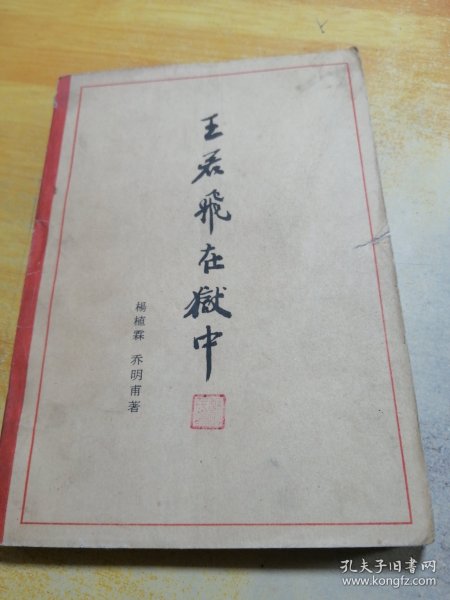 王若飛在獄中
楊植霖 乔明甫著
孔夫子旧书网
www.kongfz.com